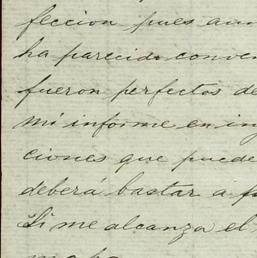 feccion pues aun
ha parecido conven
fueron perfectos de
mi informe en ing
ciones que puede
deberá bastar a
Si me alcanza el